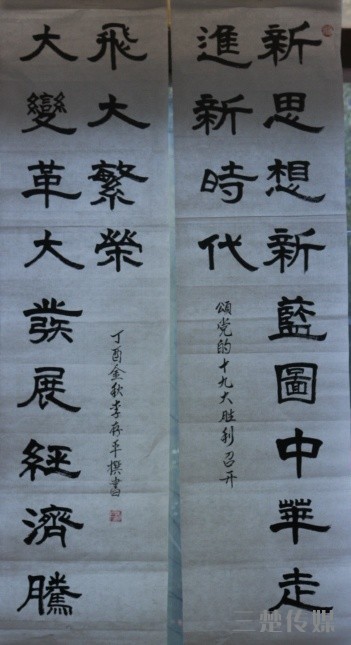 新思想新藍圖中華走
進新時代
頌党的十九大胜利召开
大變革大發展經濟騰
飛大繁榮
丁酉金秋李存平撰書
三楚传媒